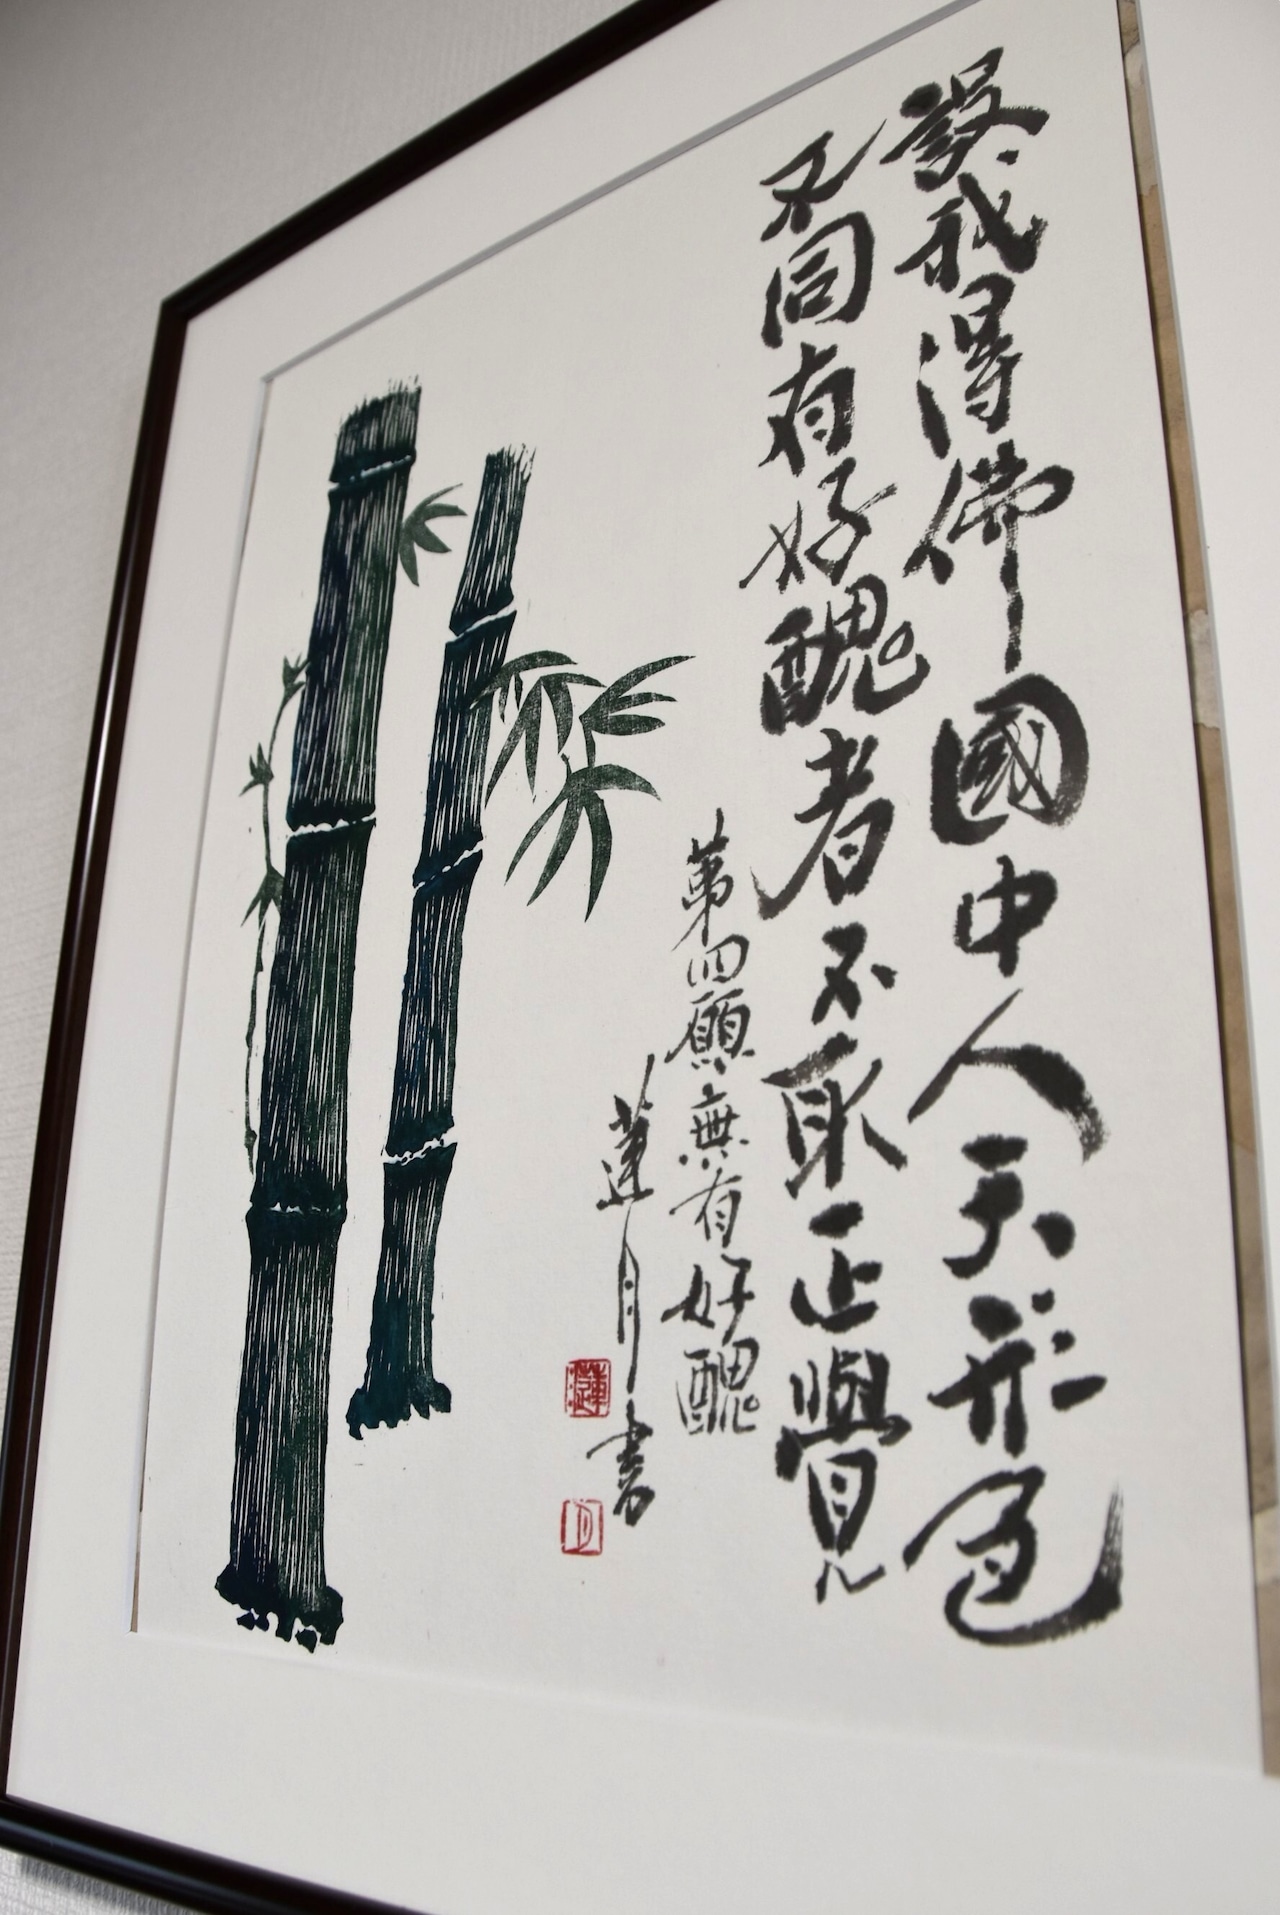 設我得佛國中人天形色
不同有好醜者不取正覺
第四願無有好醜
蓮月書
蓮
月